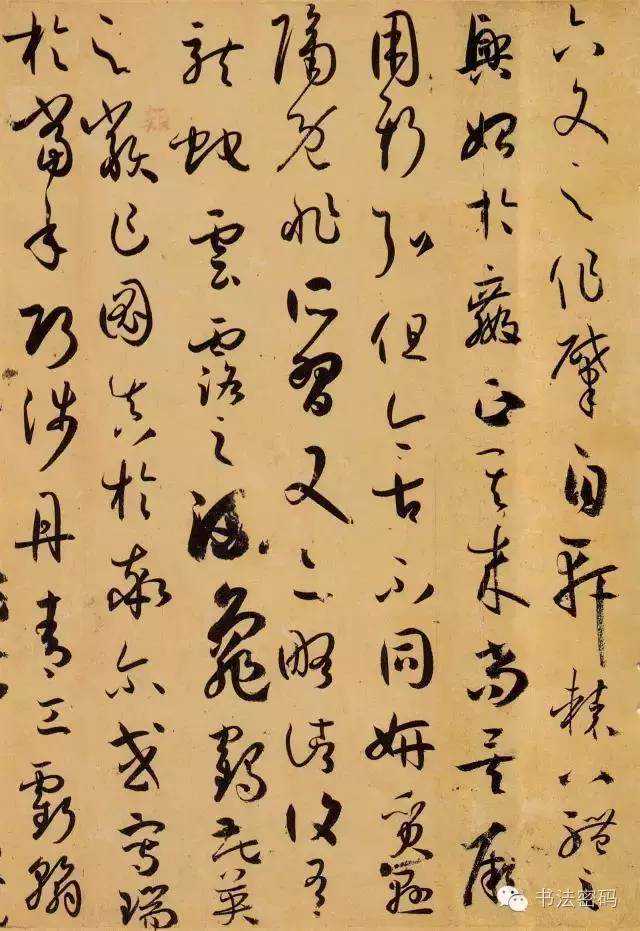 六文之作肇自軒轅八體之
興始於嬴正其来尚矣厥
用斯弘但今古不同妍質懸
隔既非所習又亦略諸復有
龍蛇雲露之流龜鶴花英
之類乍圖真於率尔或寫瑞
於當年巧涉丹青工虧翰
书法密码